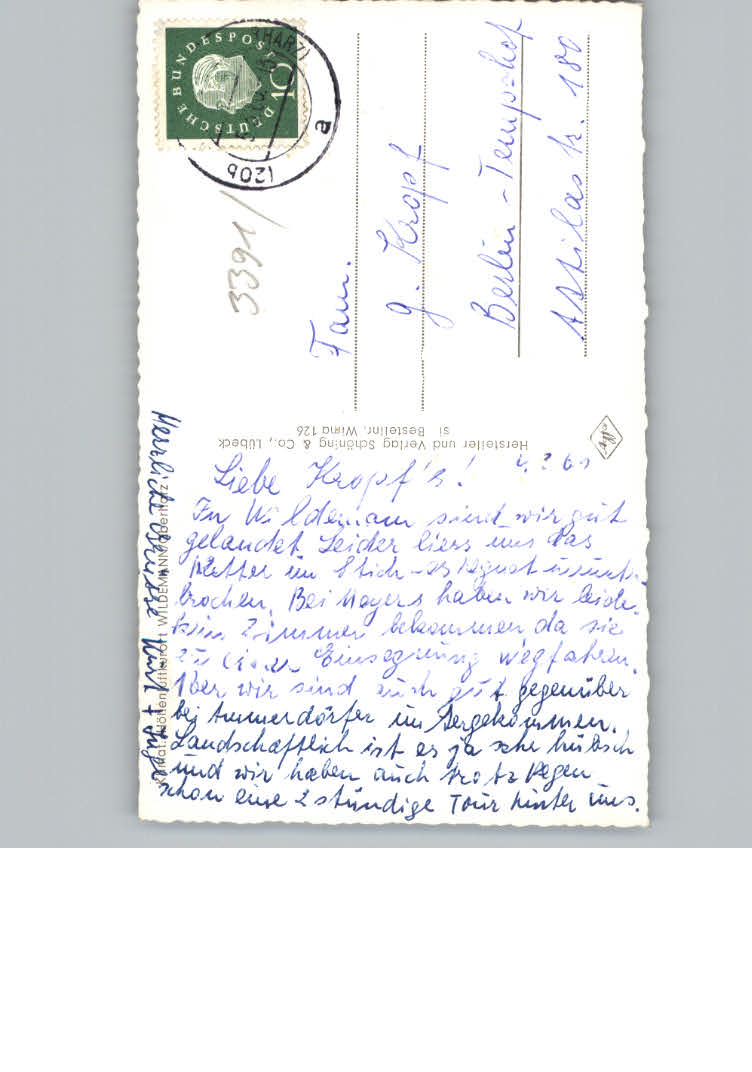 DEUTSCHE BUNDESPOST
(HARZ)
(20b)
a
3391
Fam.
G. Kropf
Berlin-Tempelhof
Attilastr. 180
Hersteller und Verlag Schöning & Co., Lübeck
si Bestellnr. Wima 126
Liebe Kropf's!
In Wildemann sind wir gut
gelandet. Leider liess uns das
Wetter im Stich - es regnet ununter-
brochen. Bei Mayers haben wir leider
kein Zimmer bekommen da sie
zu einer Einsegnung wegfahren.
Aber wir sind auch gut gegenüber
bei Ammerdörfer
Landschaftlich ist es ja sehr hübsch
und wir haben auch trotz Regen
schon eine 2 stündige Tour hinter uns.
Herrliche Grüsse Kurt + Inge
Höhenluftkurort WILDEMANN/Oberharz